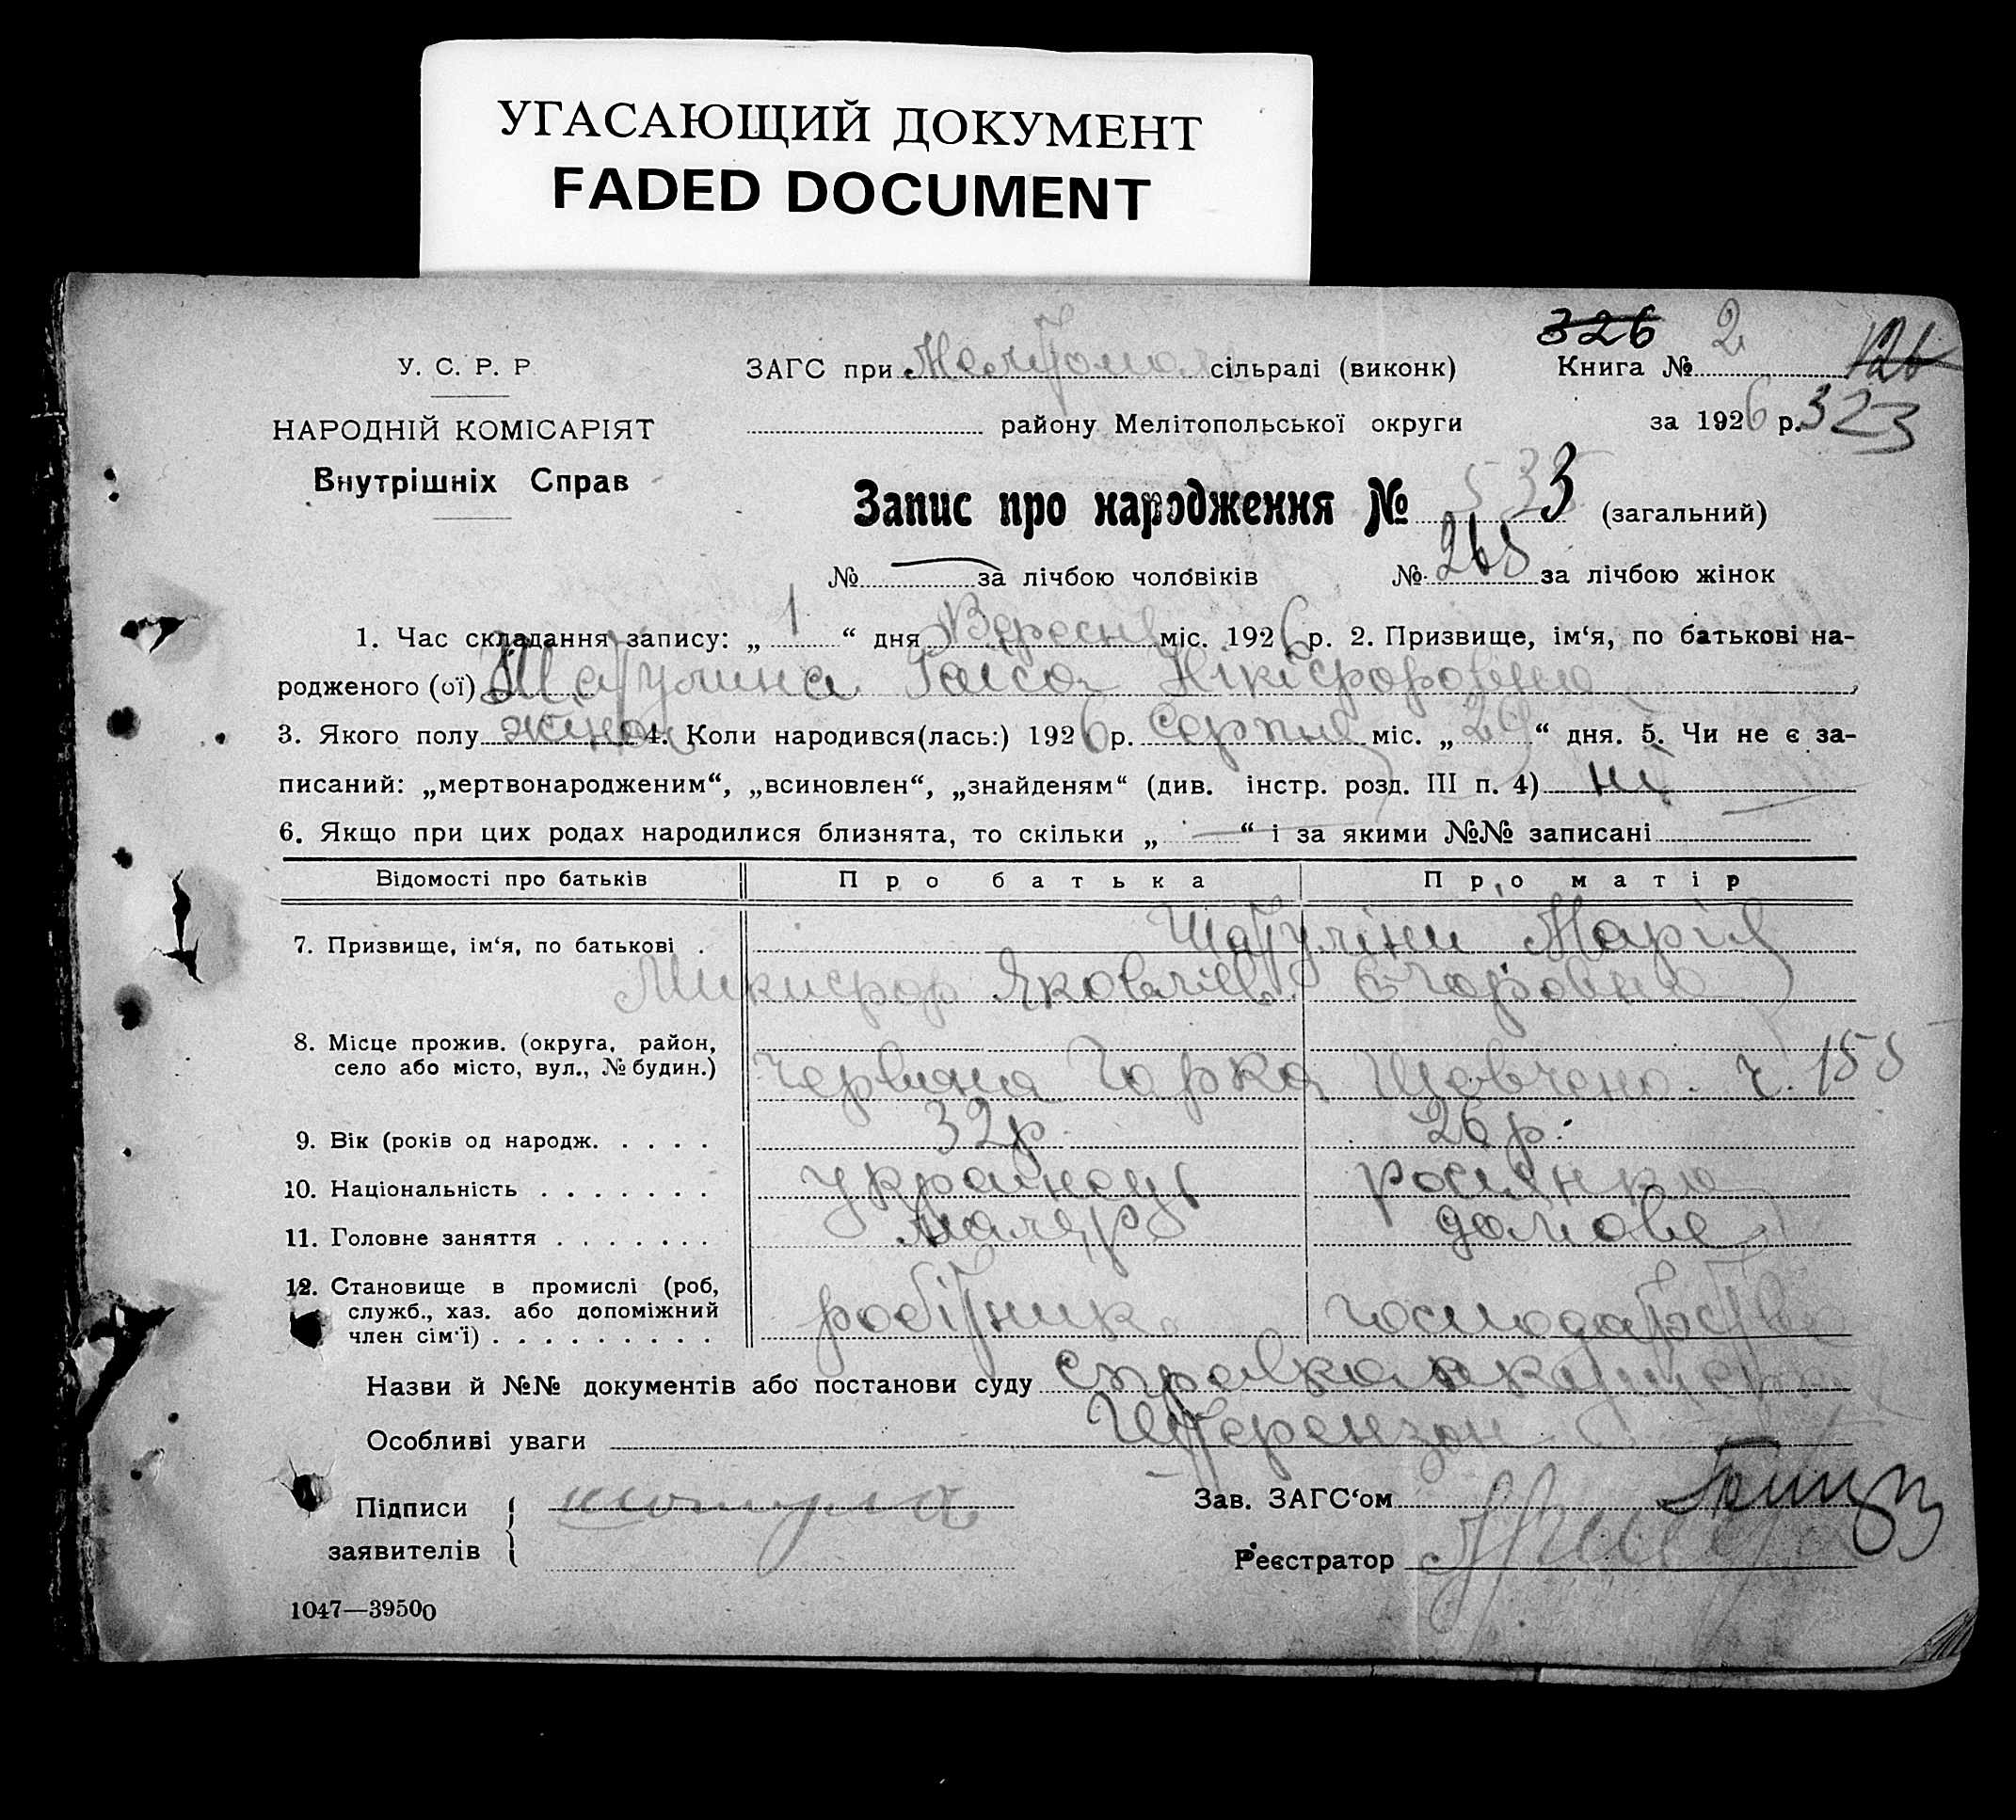 УГАСАЮЩИЙ ДОКУМЕНТ
FADED DOCUMENT
326 2 126
У. С. Р. Р ЗАГС при сільраді (виконк) Книга №
НАРОДНІЙ КОМІСАРІЯТ району Мелітопольської округи за 1926 р. 323
Внутрішніх Справ
Запис про народження № 533 (загальний)
№ — за лічбою чоловіків № 265 за лічбою жінок
1. Час складання запису: „ 1 “ дня Вересня міс. 1926 р. 2. Призвище, ім‘я, по батькові на-
родженого (ої) Шатулина Раіса Нікіфоровна
3. Якого полу жіноч 4. Коли народився(лась:) 1926 р. Серпня міс. „ 29 “ дня. 5. Чи не є за-
писаний: „мертвонародженим“, „всиновлен“, „знайденям“ (див. інстр. розд. III п. 4) ні
6. Якщо при цих родах народилися близнята, то скільки „ — “ і за якими №№ записані
Відомості про батьків Про батька Про матір
7. Призвище, ім‘я, по батькові . Шатуліни Марія
Микифор Яковлів Єгоровна
8. Місце прожив. (округа, район,
село або місто, вул., № будин.) Червона Горка Шевченко. ч. 155
9. Вік (років од народж. . . . . 32 р. 26 р.
10. Національність . . . . . . . українець росіянка
11. Головне заняття . . . . . . . маляр домове
12. Становище в промислі (роб,
служб., хаз. або допоміжний
член сім‘ї) . . . . . . . . . робітник господарство
Назви й №№ документів або постанови суду справка акушерки
Особливі уваги Штерензон
Підписи Зав. ЗАГС‘ом
заявителів Реєстратор
1047—39500